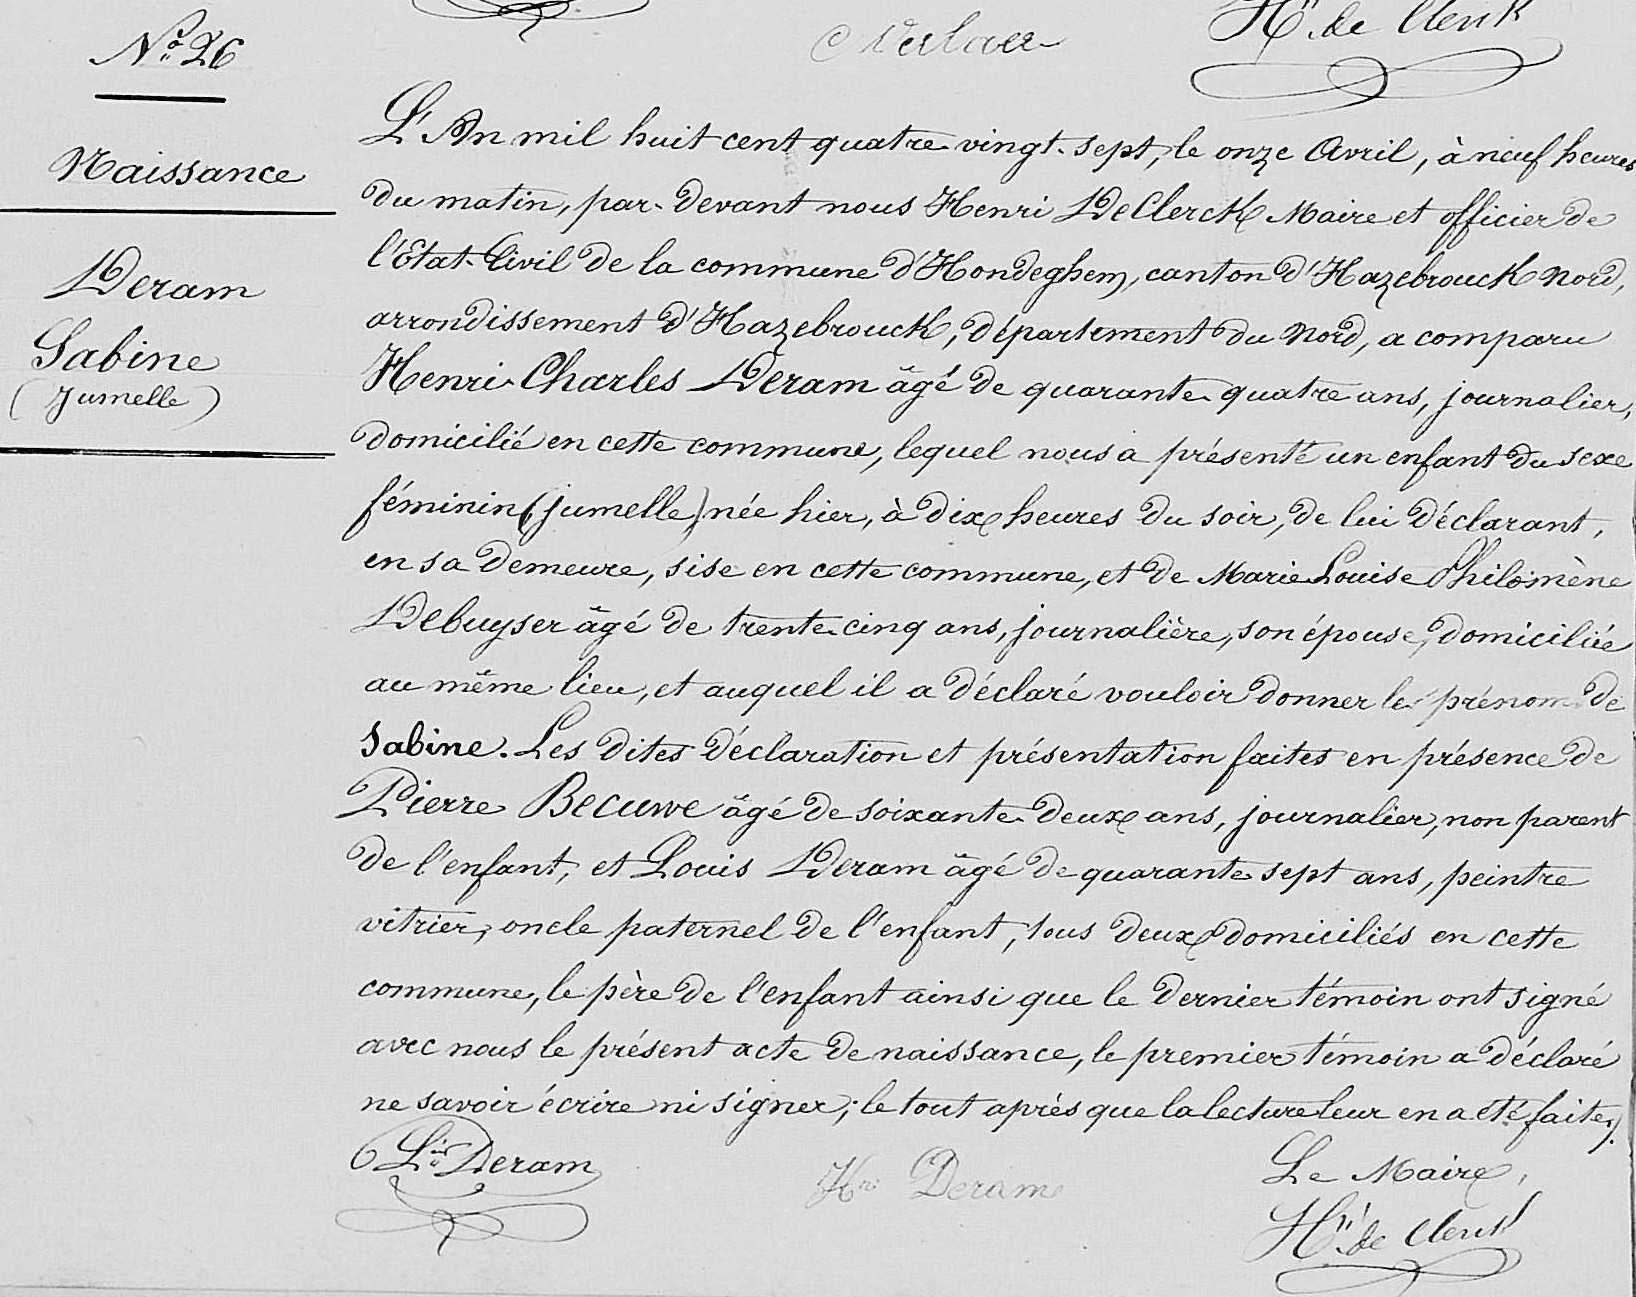 Hri de Clerck
No 26
Naissance
Deram
Sabine
(Jumelle)
L'An mil huit cent quatre-vingt-sept, le onze Avril, à neuf heures
du matin, par-devant nous Henri DeClerck Maire et officier de
l'Etat-Civil de la commune d'Hondeghem, canton d'Hazebrouck Nord,
arrondissement d'Hazebrouck, département du Nord, a comparu
Henri-Charles Deram âgé de quarante-quatre ans, journalier,
domicilié en cette commune, lequel nous a présenté un enfant du sexe
féminin (jumelle) née hier, à dix heures du soir, de lui déclarant,
en sa demeure, sise en cette commune, et de Marie Louise Philomène
Debuyser âgé de trente-cinq ans, journalière, son épouse, domiciliée
au même lieu, et auquel il a déclaré vouloir donner le prénom de
Sabine. Les dites déclaration et présentation faites en présence de
Pierre Becuwe âgé de soixante-deux ans, journalier, non parent
de l'enfant, et Louis Deram âgé de quarante-sept ans, peintre
vitrier, oncle paternel de l'enfant, tous deux domiciliés en cette
commune, le père de l'enfant ainsi que le dernier témoin ont signé
avec nous le présent acte de naissance, le premier témoin a déclaré
ne savoir écrire ni signer; le tout après que la lecture leur en a été faite.
Ls Deram
Hri Deram
Le Maire,
Hri de Clerck